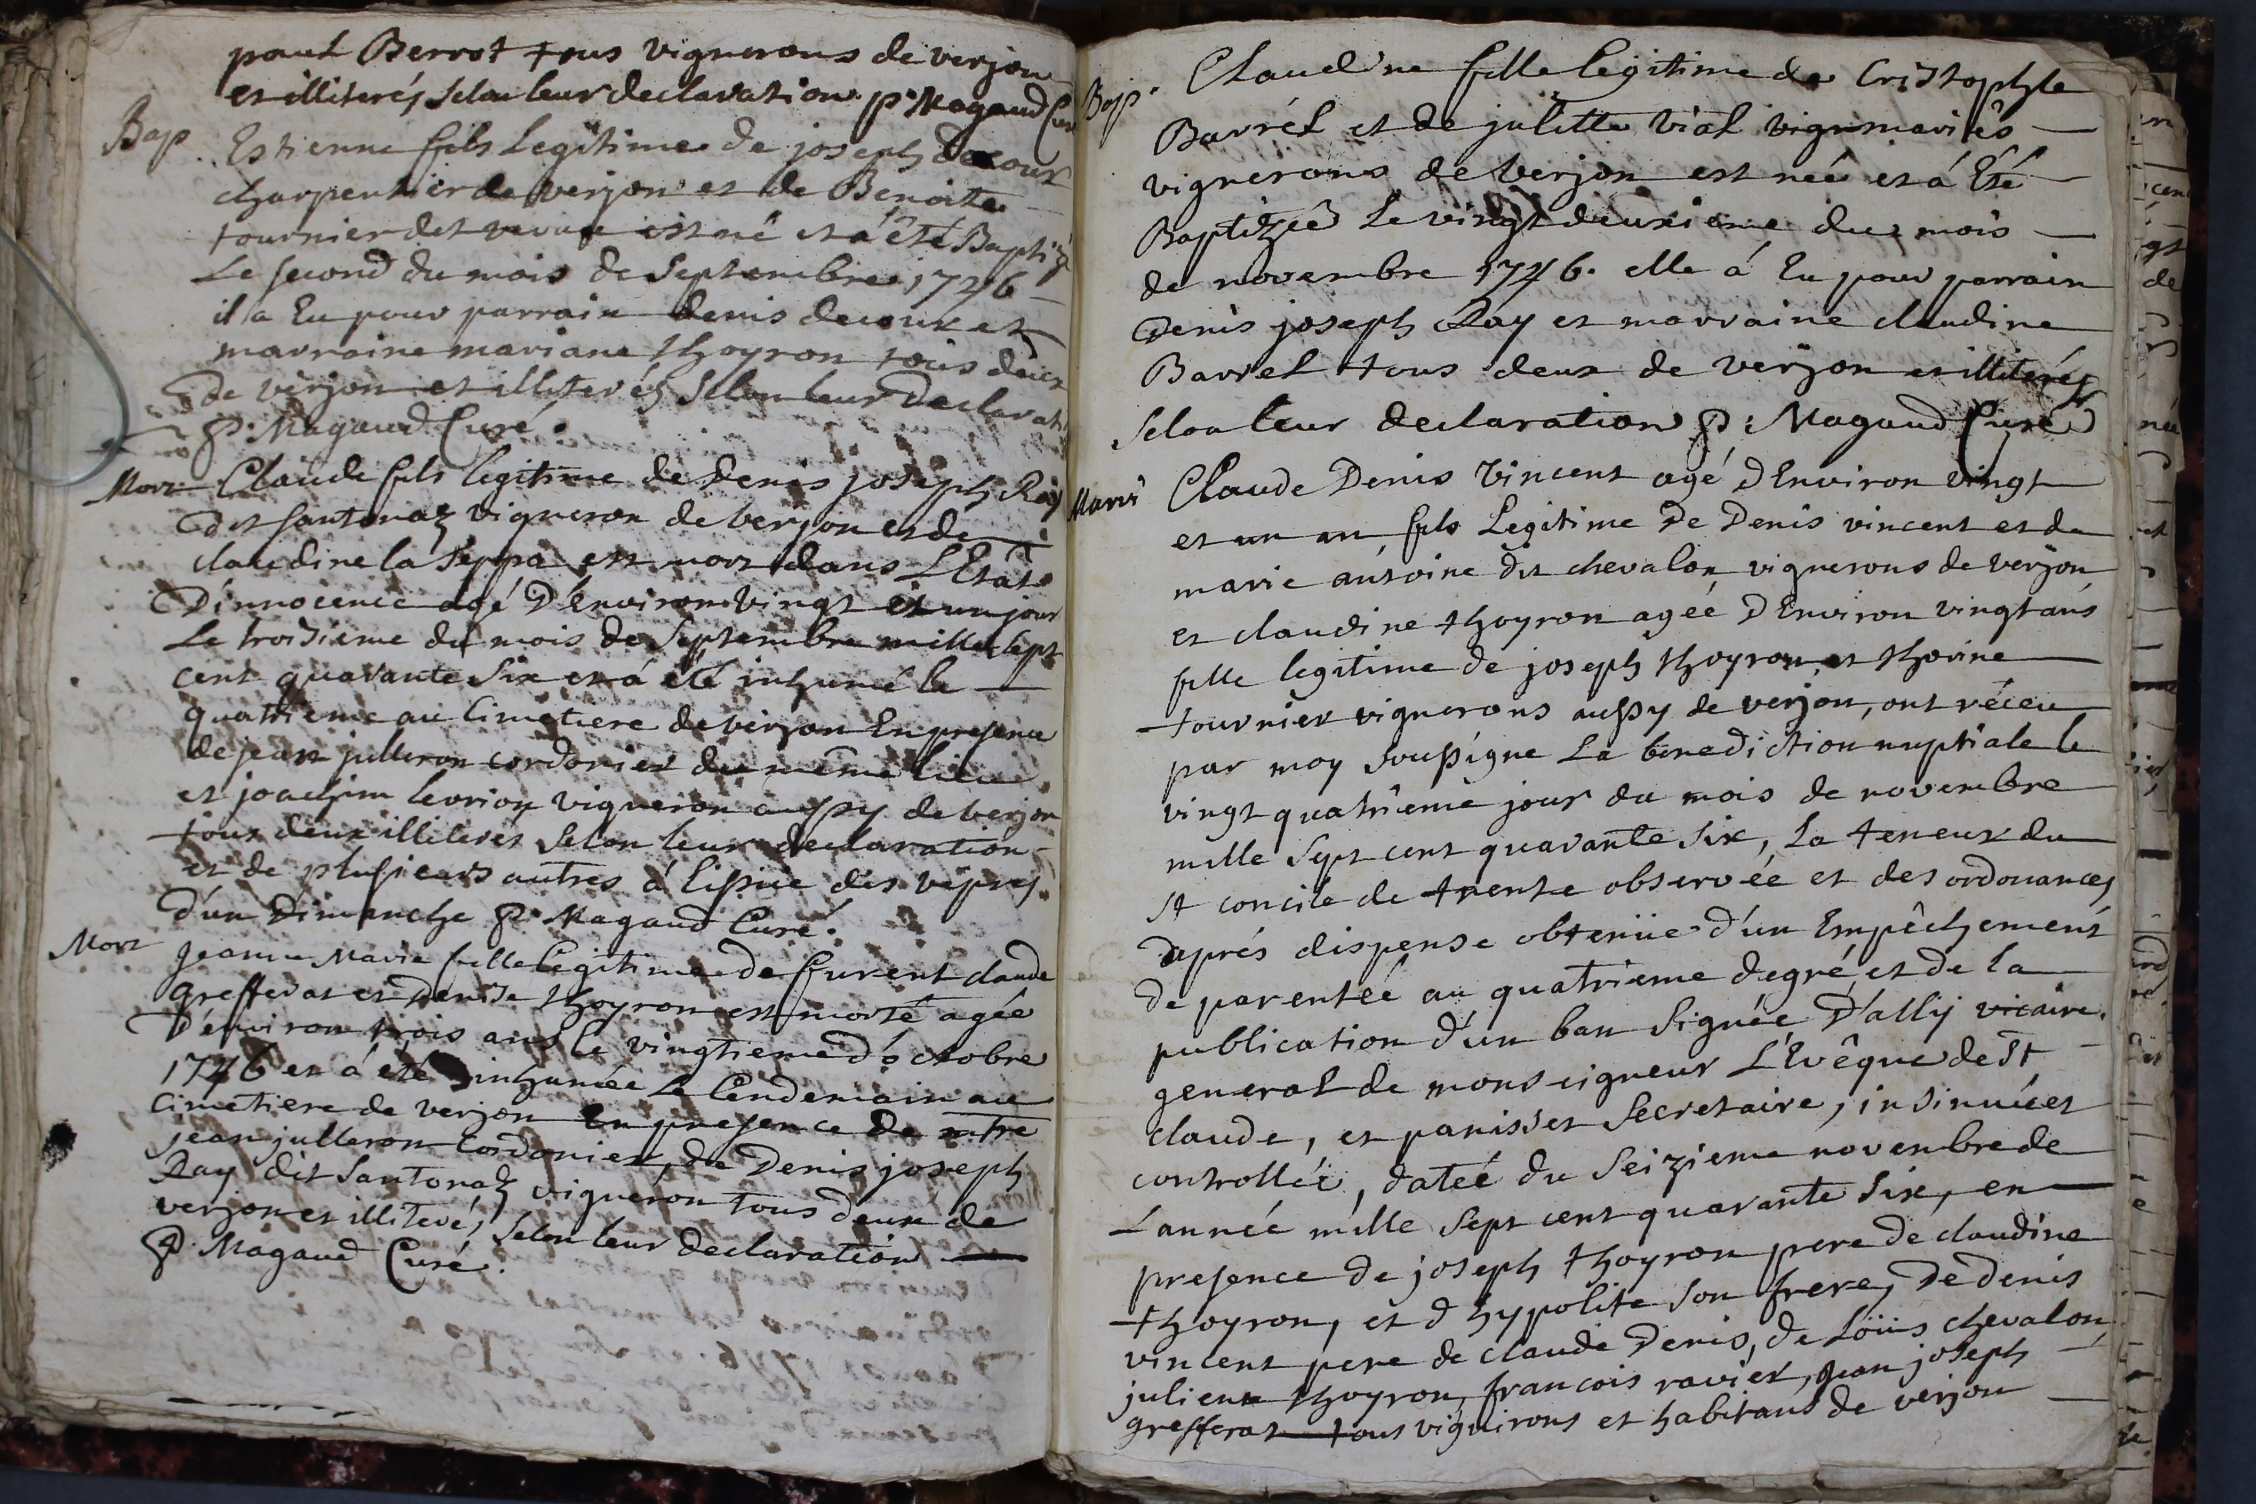 paul Berrot tous vignerons de verjon
et illiterés selon leur declaration p. Magaud Curé
Bap. Estienne fils Legitime de joseph decour
charpentier de verjon et de Benoite
tournier dit est né et a été Baptizé
Le second du mois de septembre 1746
il a Eu pour parrain denis decour et
marraine mariane thoyron tous deux
de verjon et illiterés selon leur declarat
p. Magaud Curé.
Mort Claude fils legitime de Denis joseph Ray
dit santonaz vigneron de verjon et de
claudine la seppa est mort dans L'Etat
D'innocence agé D'Environ vingt et un jour
Le troisieme du mois de septembre mille sept
cent quarante six et á été inhumé le
quatrieme au Cimetiere de verjon En presence
de jean julleron cordonier du même lieu
et joachim levrion vigneron aussy de verjon
tous deux illiteres selon leur declaration
et de plusieurs autres á l'issue des vépres
d'un Dimanche p. Magaud Curé.
Mort Jeanne Marie fille Legitime de Claude
grefferat et Denise thoyron est morte agée
D'environ trois ans le vingtieme d'octobre
1746 et á été inhumée Le lendemain au
cimetiere de verjon En presence de
jean julleron Cordonier, de Denis joseph
Ray dit santonaz vigneron tous deux de
verjon et illiteré, selon leur declaration
p. Magaud Curé.
Bap. Claudine fille legitime de Cristophle
Barrél et de julitte vial mariés
vignerons de verjon est née et á Été
Baptizée Le vingt deuxieme du mois
de novembre 1746. elle á Eu pour parrain
Denis joseph Ray et marraine claudine
Barrel tous deux de verjon et illiterés
selon leur declaration p: Magaud Curé
Mari Claude Denis Vincent agé D'Environ vingt
et un an fils Legitime De Denis vincent et de
marie antoine dit chevalon vignerons de verjon
et claudine thoyron agée D'Environ vingt ans
fille legitime de joseph thoyron et thorine
tournier vignerons aussy de verjon, ont réceu
par moy soussigne La benediction nuptiale le
vingt quatrieme jour du mois de novembre
mille sept cent quarante six, La teneur du
st concile de trente observée et des ordonances
aprés dispense obtenüe d'un Empêchement
de parentée au quatrieme degré, et de la
publication d'un ban signée D'allij vicaire
general de monseigneur L'Evêque de St
claude, et panisset secretaire, insinuée et
controllée, datée du seizieme novembre de
L'année mille sept cent quarante six, en
presence de joseph thoyron pere de claudine
thoyron, et d hypolite son frere, de denis
vincent pere de claude Denis, de Loüis chevalon,
julien thoyron, francois ravier, jean joseph
grefferat tous vignirons et habitans de verjon